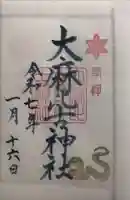 大麻比古神社
令和七年
一月十六日